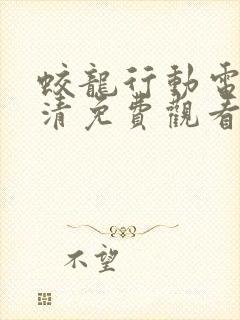 蛟龍行動電
清免費觀看
不望